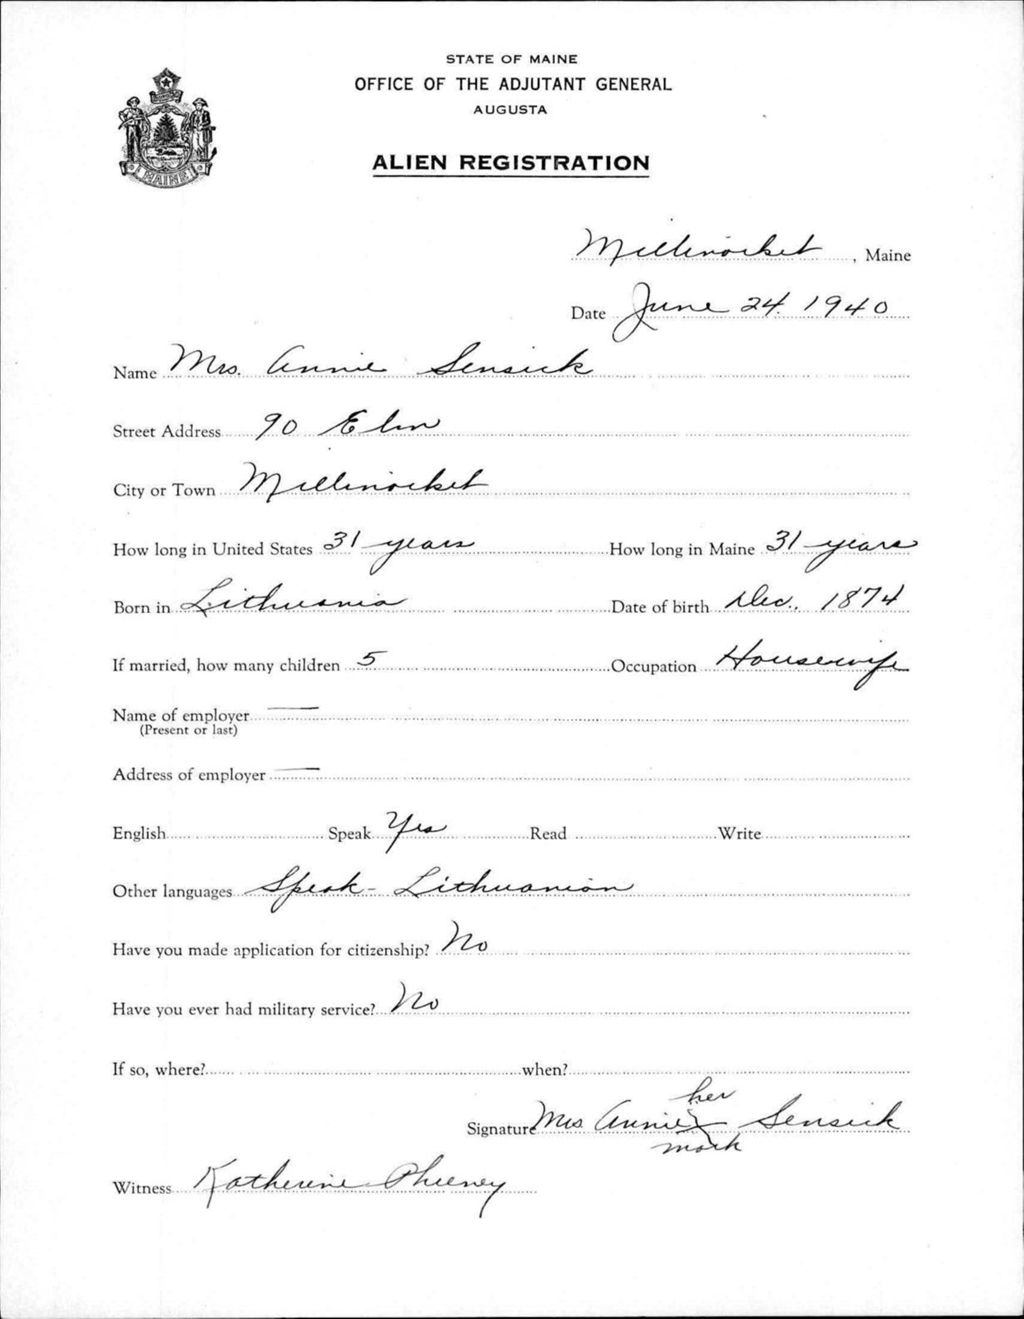 STATE OF MAINE
OFFICE OF THE ADJUTANT GENERAL
AUGUSTA
MAINE
ALIEN REGISTRATION
Millinocket, Maine
Date June 24. 1940
Name Mrs. Annie Sensick
Street Address 90 Elm
City or Town Millinocket
How long in United States 31 years How long in Maine 31 years
Born in Lithuania Date of birth Dec., 1874
If married, how many children 5 Occupation Housewife
Name of employer
(Present or last)
Address of employer
English Speak Yes Read Write
Other languages Speak - Lithuanian
Have you made application for citizenship? No
Have you ever had military service? No
If so, where? when?
her
Signature Mrs Annie X Sensick
mark
Witness Katherine Pheeney